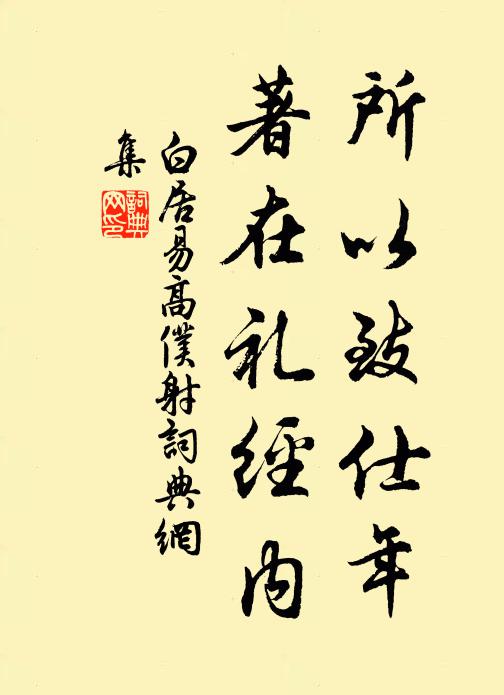 所以致仕年
著在礼經内
白居易高僕射詞典網
集
詞典
网印